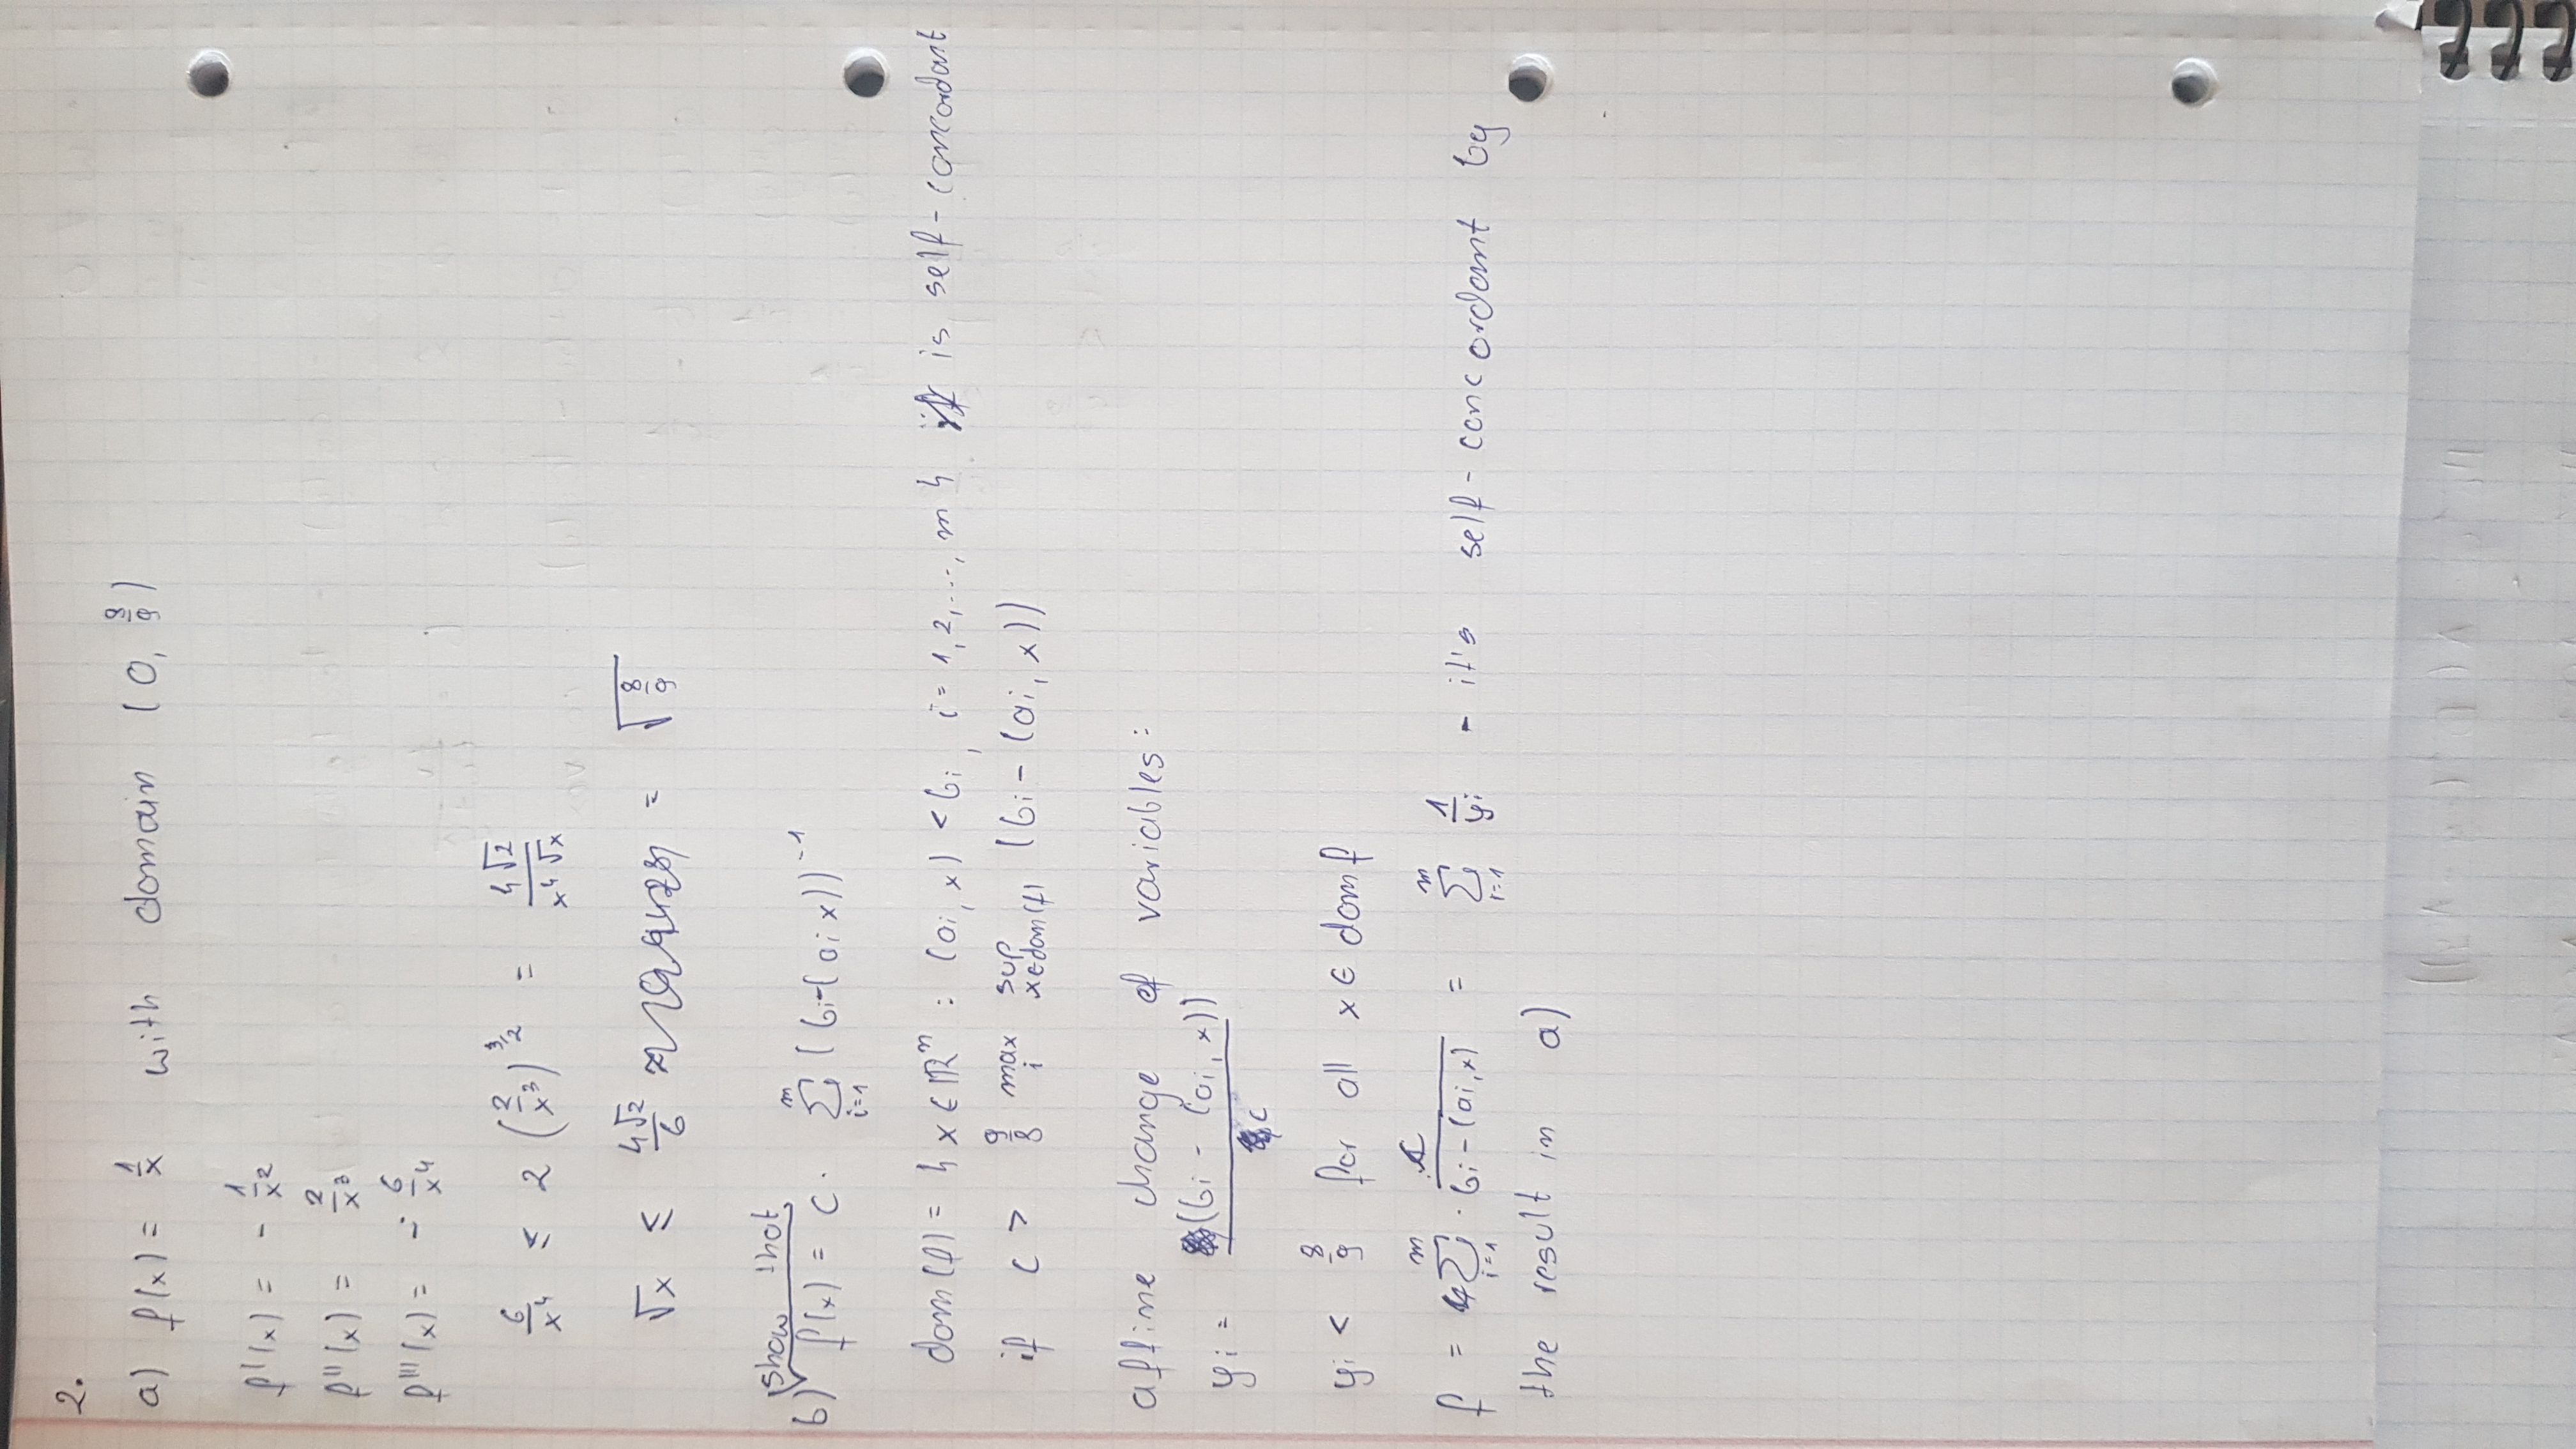 2.
a) f(x) = 1/x with domain (0, 8/9)
f'(x) = - 1/x²
f''(x) = 2/x³
f'''(x) = - 6/x⁴
6/x⁴ ≤ 2 (2/x³)^(3/2) = 4√2 / (x⁴ √x)
√x ≤ 4√2/6 = √(8/9)
show that
b) f(x) = c · ∑_{i=1}^{m} (bi-(ai x))⁻¹
dom(f) = { x ∈ ℝⁿ : (ai, x) < bi, i = 1, 2, ..., m } is self-concordant
if c > 9/8 max_i sup_{x∈dom(f)} (bi - (ai, x))
affine change of variables:
yi = (bi - (ai, x)) / c
yi < 8/9 for all x ∈ dom f
f = ∑_{i=1}^{m} · c / (bi - (ai, x)) = ∑_{i=1}^{m} 1/yi - it's self-concordant by
the result in a)